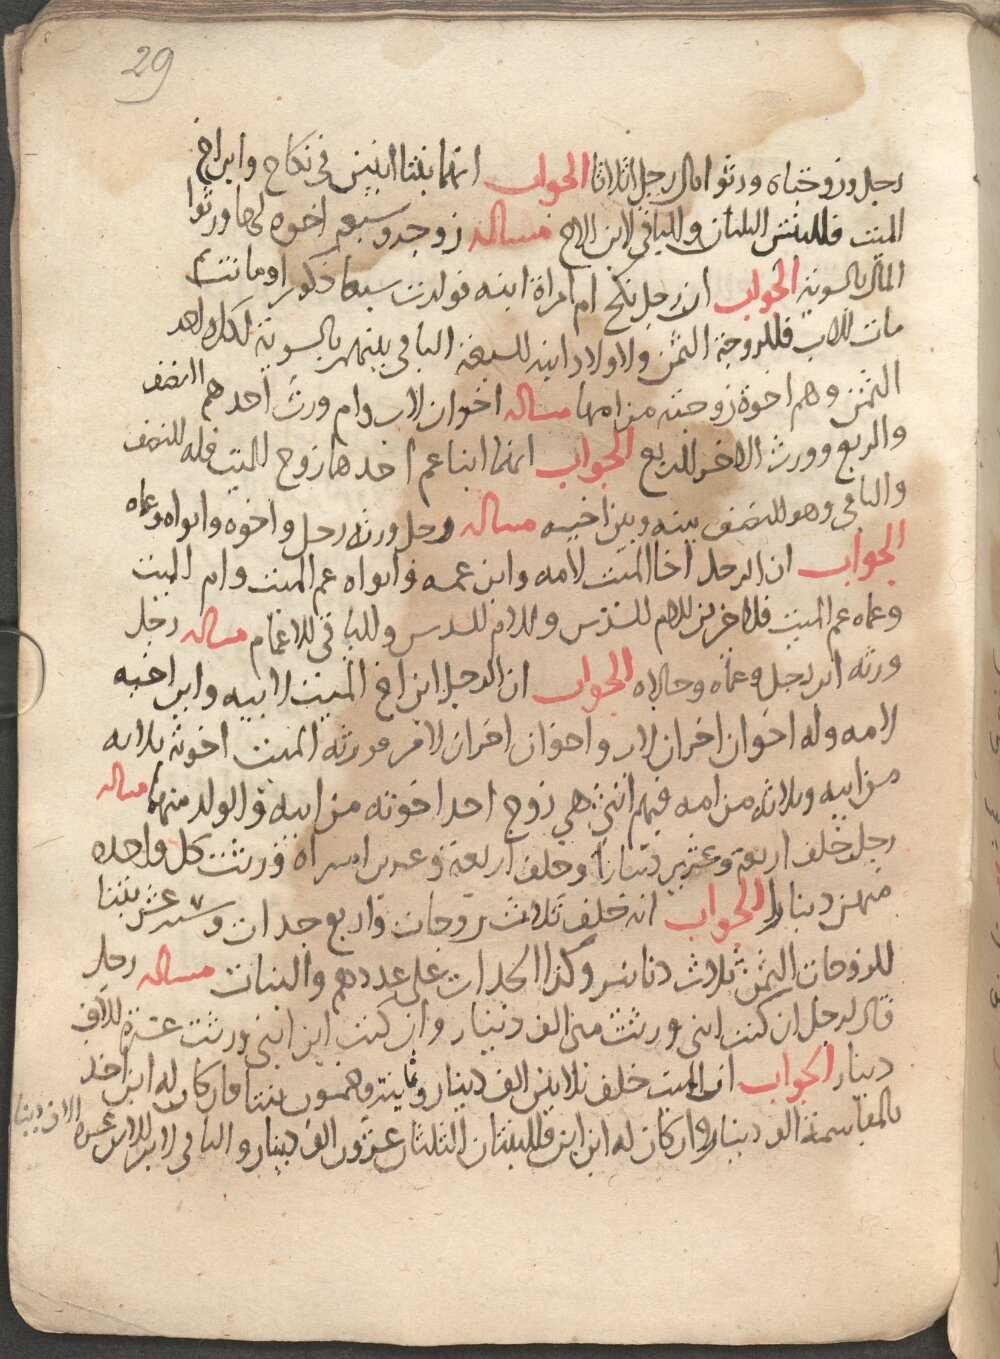 29
رجل وزوجتاه ورثوا مال رجل اثلاثا الجواب انهما بنتا ابنين في نكاح وابن اخ
الميت فللبنتين الثلثان والباقي لابن الاخ مسالة زوجة وسبعة اخوة لها ورثوا
المال بالسوية الجواب ان رجل نكح ام امراة ابنه فولدت سبعا ذكور او مات ثم
مات الاب فللزوجة الثمن ولاولاد ابنه السبعة الباقي بينهم بالسوية لكل واحد
الثمن وهم اخوة زوجته من امها مسالة اخوان لاب وام ورث احدهم النصف
والربع وورث الاخر الربع الجواب انهما ابنا عم احدهما زوج الميت فله النصف
والباقي وهو النصف بينه وبين اخيه مسالة رجل ورثه رجل واخوه وابواه وعماه
الجواب ان الرجل اخا الميت لامه وابن عمه وابواه عم الميت وام الميت
وعماه عم الميت فللاخوين للام السدس وللام السدس والباقي للاعمام مسالة رجل
ورثه ابن رجل وعماه وخالاه الجواب ان الرجل ابن اخ الميت لابيه وابن اخيه
لامه وله اخوان اخران لاب واخوان اخران لام فورثه الميت اخوته ثلاثه
من ابيه وثلاثه من امه فيهم انثى هي زوج احد اخوته من ابيه والولد منهما مسالة
رجل خلف اربعة وعشرين دينارا وخلف اربعة وعشرين امراة فورثت كل واحدة
منهن دينارا الجواب انه خلف ثلاث زوجات واربع جدات وستة عشر بنتا
للزوجات الثمن ثلاث دنانير وكذا الجدات على عددهم والبنات مسالة رجل
قال لرجل ان كنت ابني ورثت مني الف دينار وان كنت ابن ابني ورثت عشرة الاف
دينار الجواب ان الميت خلف ثلاثين الف دينار وثمانية وخمسون بنتا فان كان له ابن اخذ
بالمقاسمة الف دينار وان كان له ابن ابن فللبنتان الثلثان عشرون الف دينار والباقي لابن الابن عشرة الاف دينار